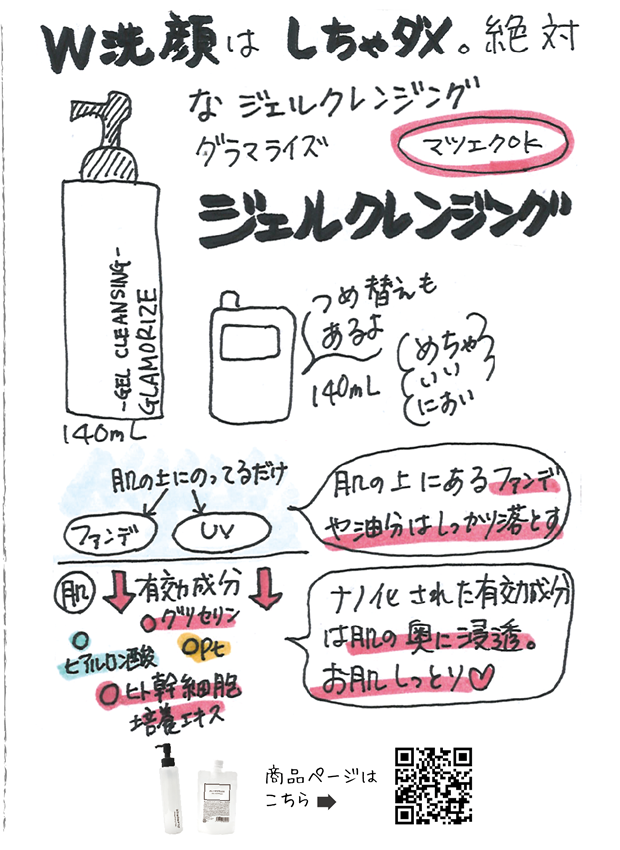 W洗顔はしちゃダメ。絶対
な ジェルクレンジング
グラマライズ
マツエクOK
ジェルクレンジング
-GEL CLEANSING-
GLAMORIZE
140mL
つめ替えも
あるよ
140mL
めちゃ
いい
におい
肌の上にのってるだけ
ファンデ
UV
肌の上にあるファンデ
や油分はしっかり落とす
肌
有効成分
グリセリン
ヒアルロン酸
Pt
ヒト幹細胞
培養エキス
ナノ化された有効成分
は肌の奥に浸透。
お肌しっとり
商品ページは
こちら